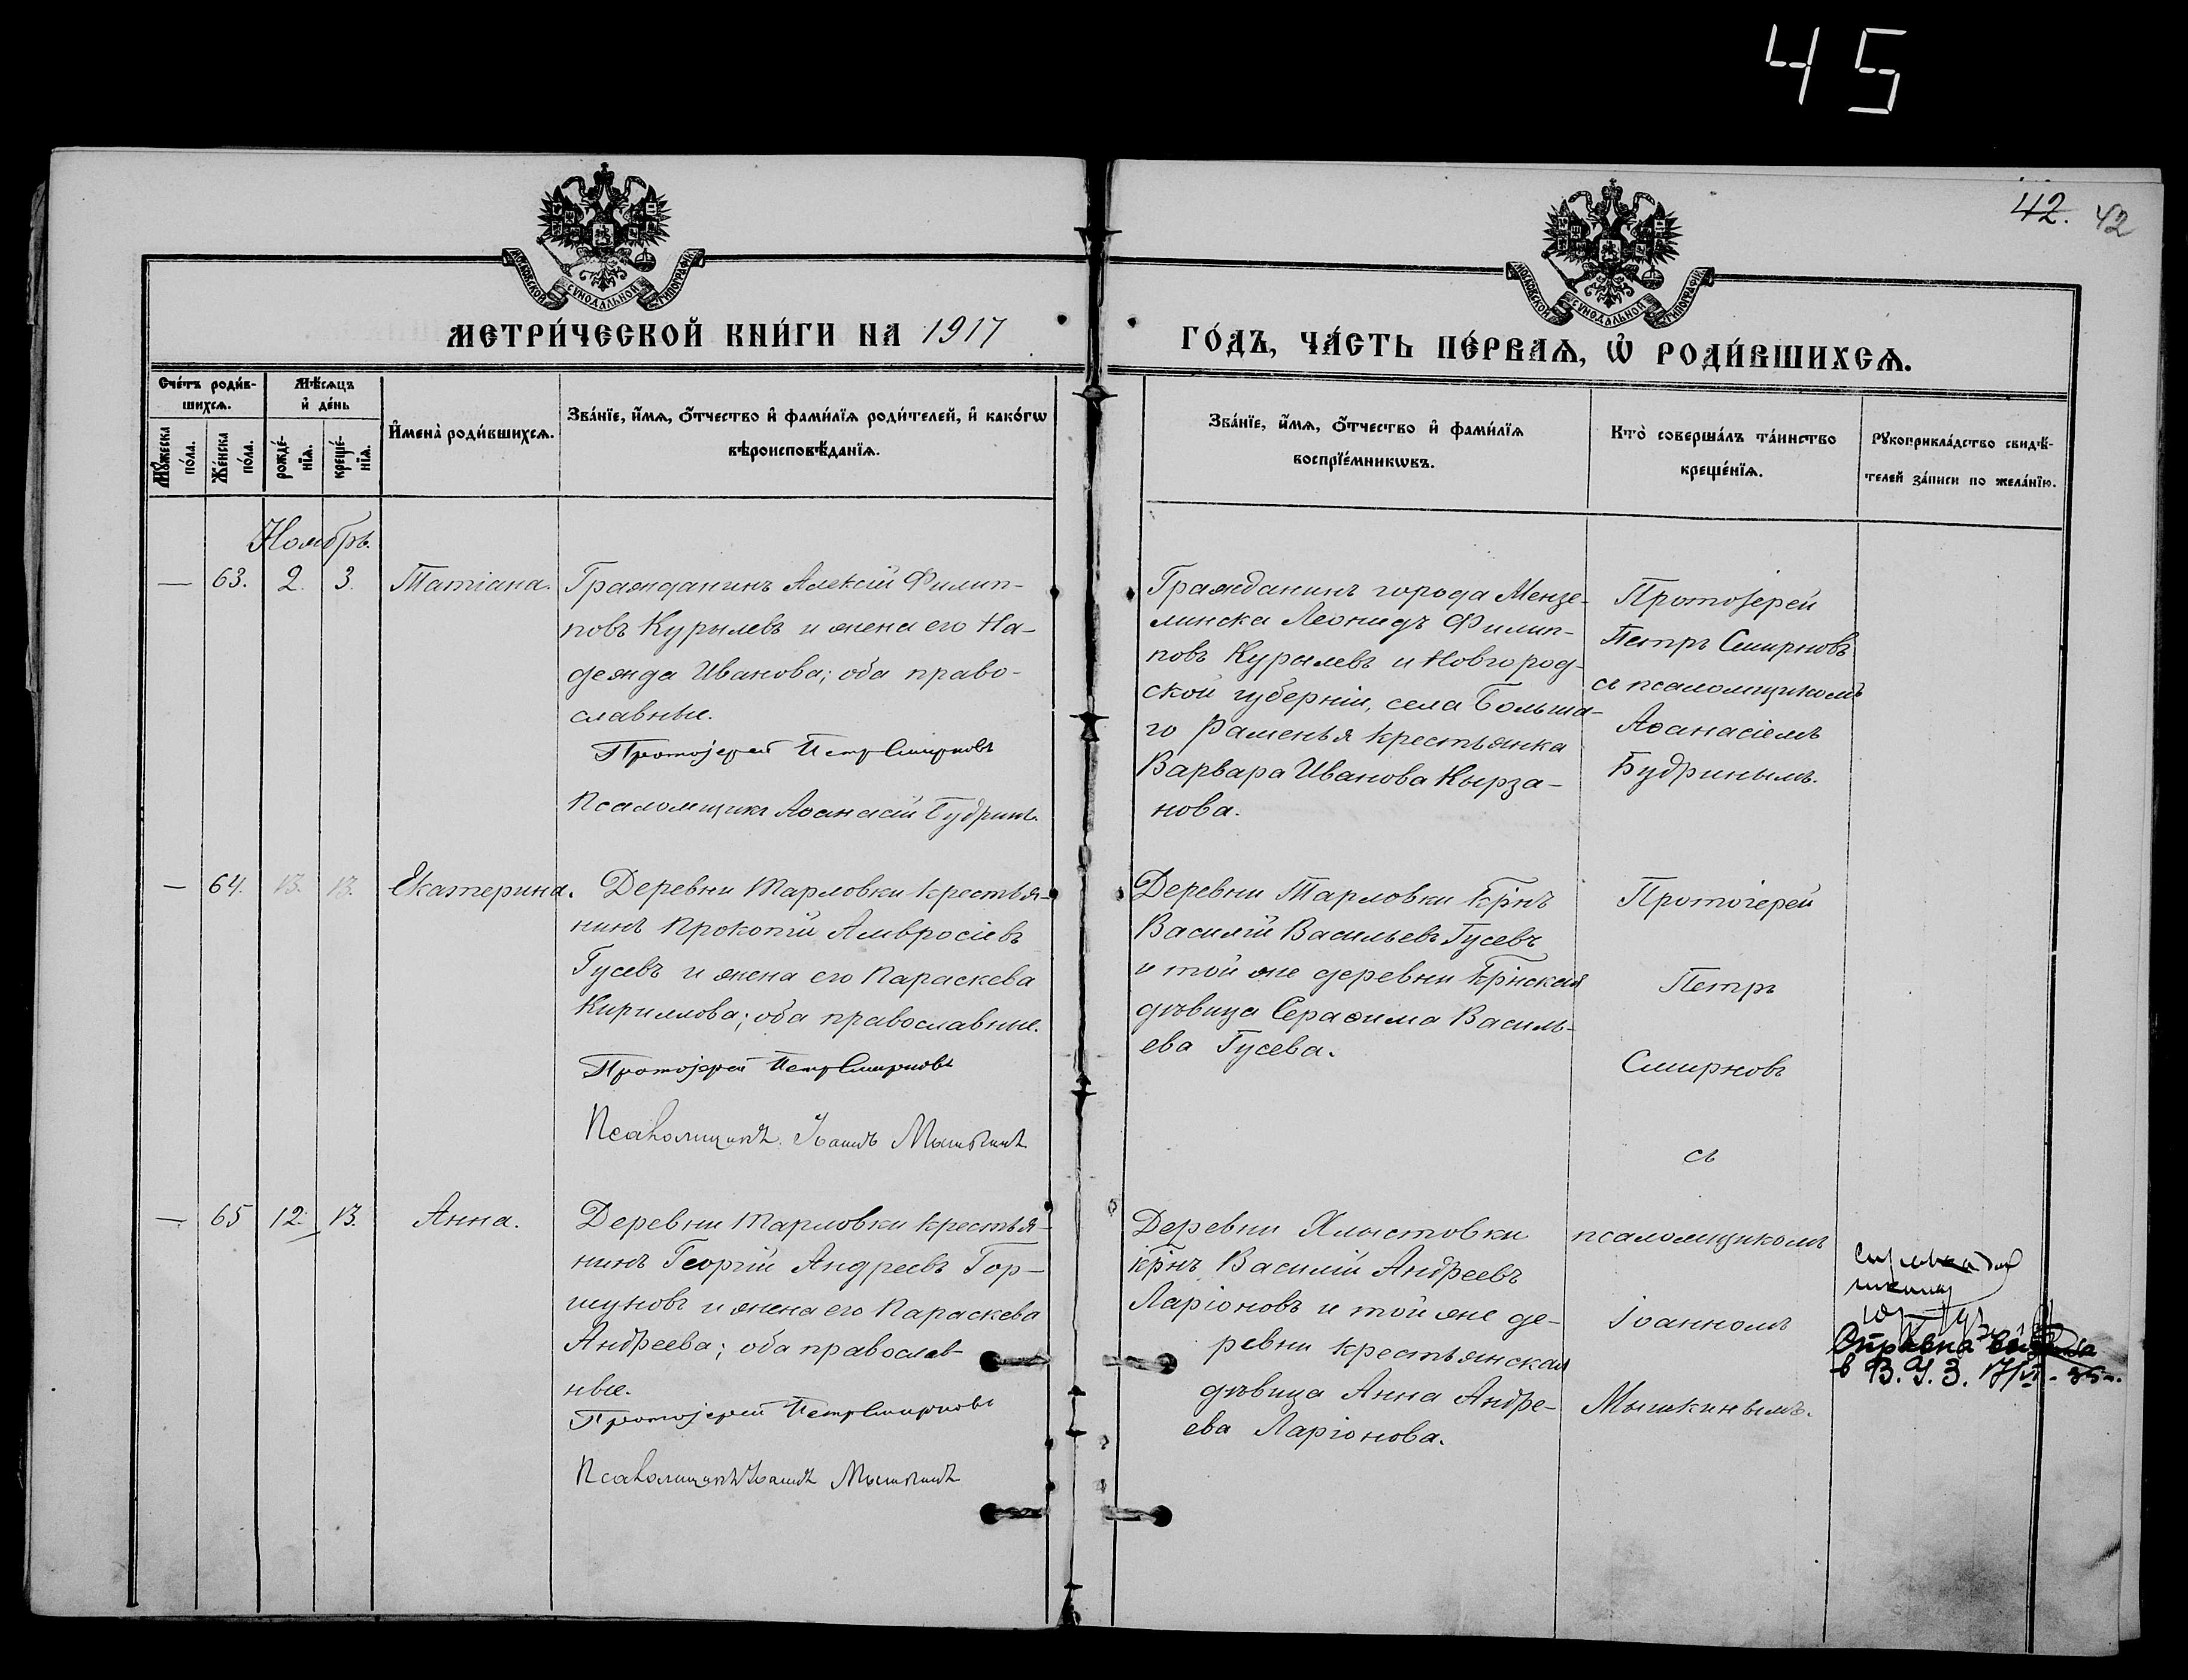 45
42. 42
МОСКОВСКОЙ СѴНОДАЛЬНОЙ ТИПОГРАФІИ
МОСКОВСКОЙ СѴНОДАЛЬНОЙ ТИПОГРАФІИ
МЕТРИ́ЧЕСКОЙ КНИ́ГИ НА 1917
ГО́ДЪ, ЧА́СТЬ ПЕ́РВАѦ, Ѡ҆ РОДИ́ВШИХСѦ.
Сче́тъ роди́в-
шихсѧ.
Мꙋ́жеска
по́ла.
Же́нска
по́ла.
Мѣ́сѧцъ
и҆ де́нь
рожде́-
нїѧ.
креще́-
нїѧ.
И҆мена̀ роди́вшихсѧ.
Зва́нїе, и҆́мѧ, ѻ҆́тчество и҆ фами́лїѧ роди́телей, и҆ како́гѡ
вѣроисповѣ́данїѧ.
Зва́нїе, и҆́мѧ, ѻ҆́тчество и҆ фами́лїѧ
воспрїе́мникѡвъ.
Кто̀ соверша́лъ та́инство
креще́нїѧ.
Рꙋкоприкла́дство свидѣ́-
телей за́писи по жела́нїю.
Ноябрь.
— 63. 2. 3. Татіана.
Гражданинъ Алексій Филип-
повъ Курылевъ и жена его На-
дежда Иванова; оба право-
славные.
Протоjерей Петръ Смирновъ
Псаломщикъ Аѳанасій Будринъ.
Гражданинъ города Мензе-
линска Леонидъ Филип-
повъ Курылевъ и Новгород-
ской губерніи, села Больша-
го Раменья крестьянка
Варвара Иванова Кырза-
нова.
Протоjерей
Петръ Смирновъ
съ псаломщикомъ
Аѳанасіемъ
Будринымъ.
— 64. 13. 13. Екатерина.
Деревни Тарловки крестья-
нинъ Прокопій Амвросіевъ
Гусевъ и жена его Параскева
Кириллова; оба православные.
Протоjерей Петръ Смирновъ
Псаломщикъ Іоаннъ Мышкинъ
Деревни Тарловки кр̃нъ
Василій Васильевъ Гусевъ
и той же деревни кр̃нская
дѣвица Серафима Василь-
ева Гусева.
Протоіерей
Петръ
Смирновъ
съ
псаломщикомъ
Іоанномъ
Мышкинымъ.
— 65 12. 13. Анна.
Деревни Тарловки крестья-
нинъ Георгій Андреевъ Гор-
шуновъ и жена его Параскева
Андреева; оба православ-
ные.
Протоjерей Петръ Смирновъ
Псаломщикъ Іоаннъ Мышкинъ
Деревни Хлыстовки
кр̃нъ Василій Андреевъ
Ларіоновъ и той же де-
ревни крестьянская
дѣвица Анна Андре-
ева Ларіонова.
Справка
в В. У. З.